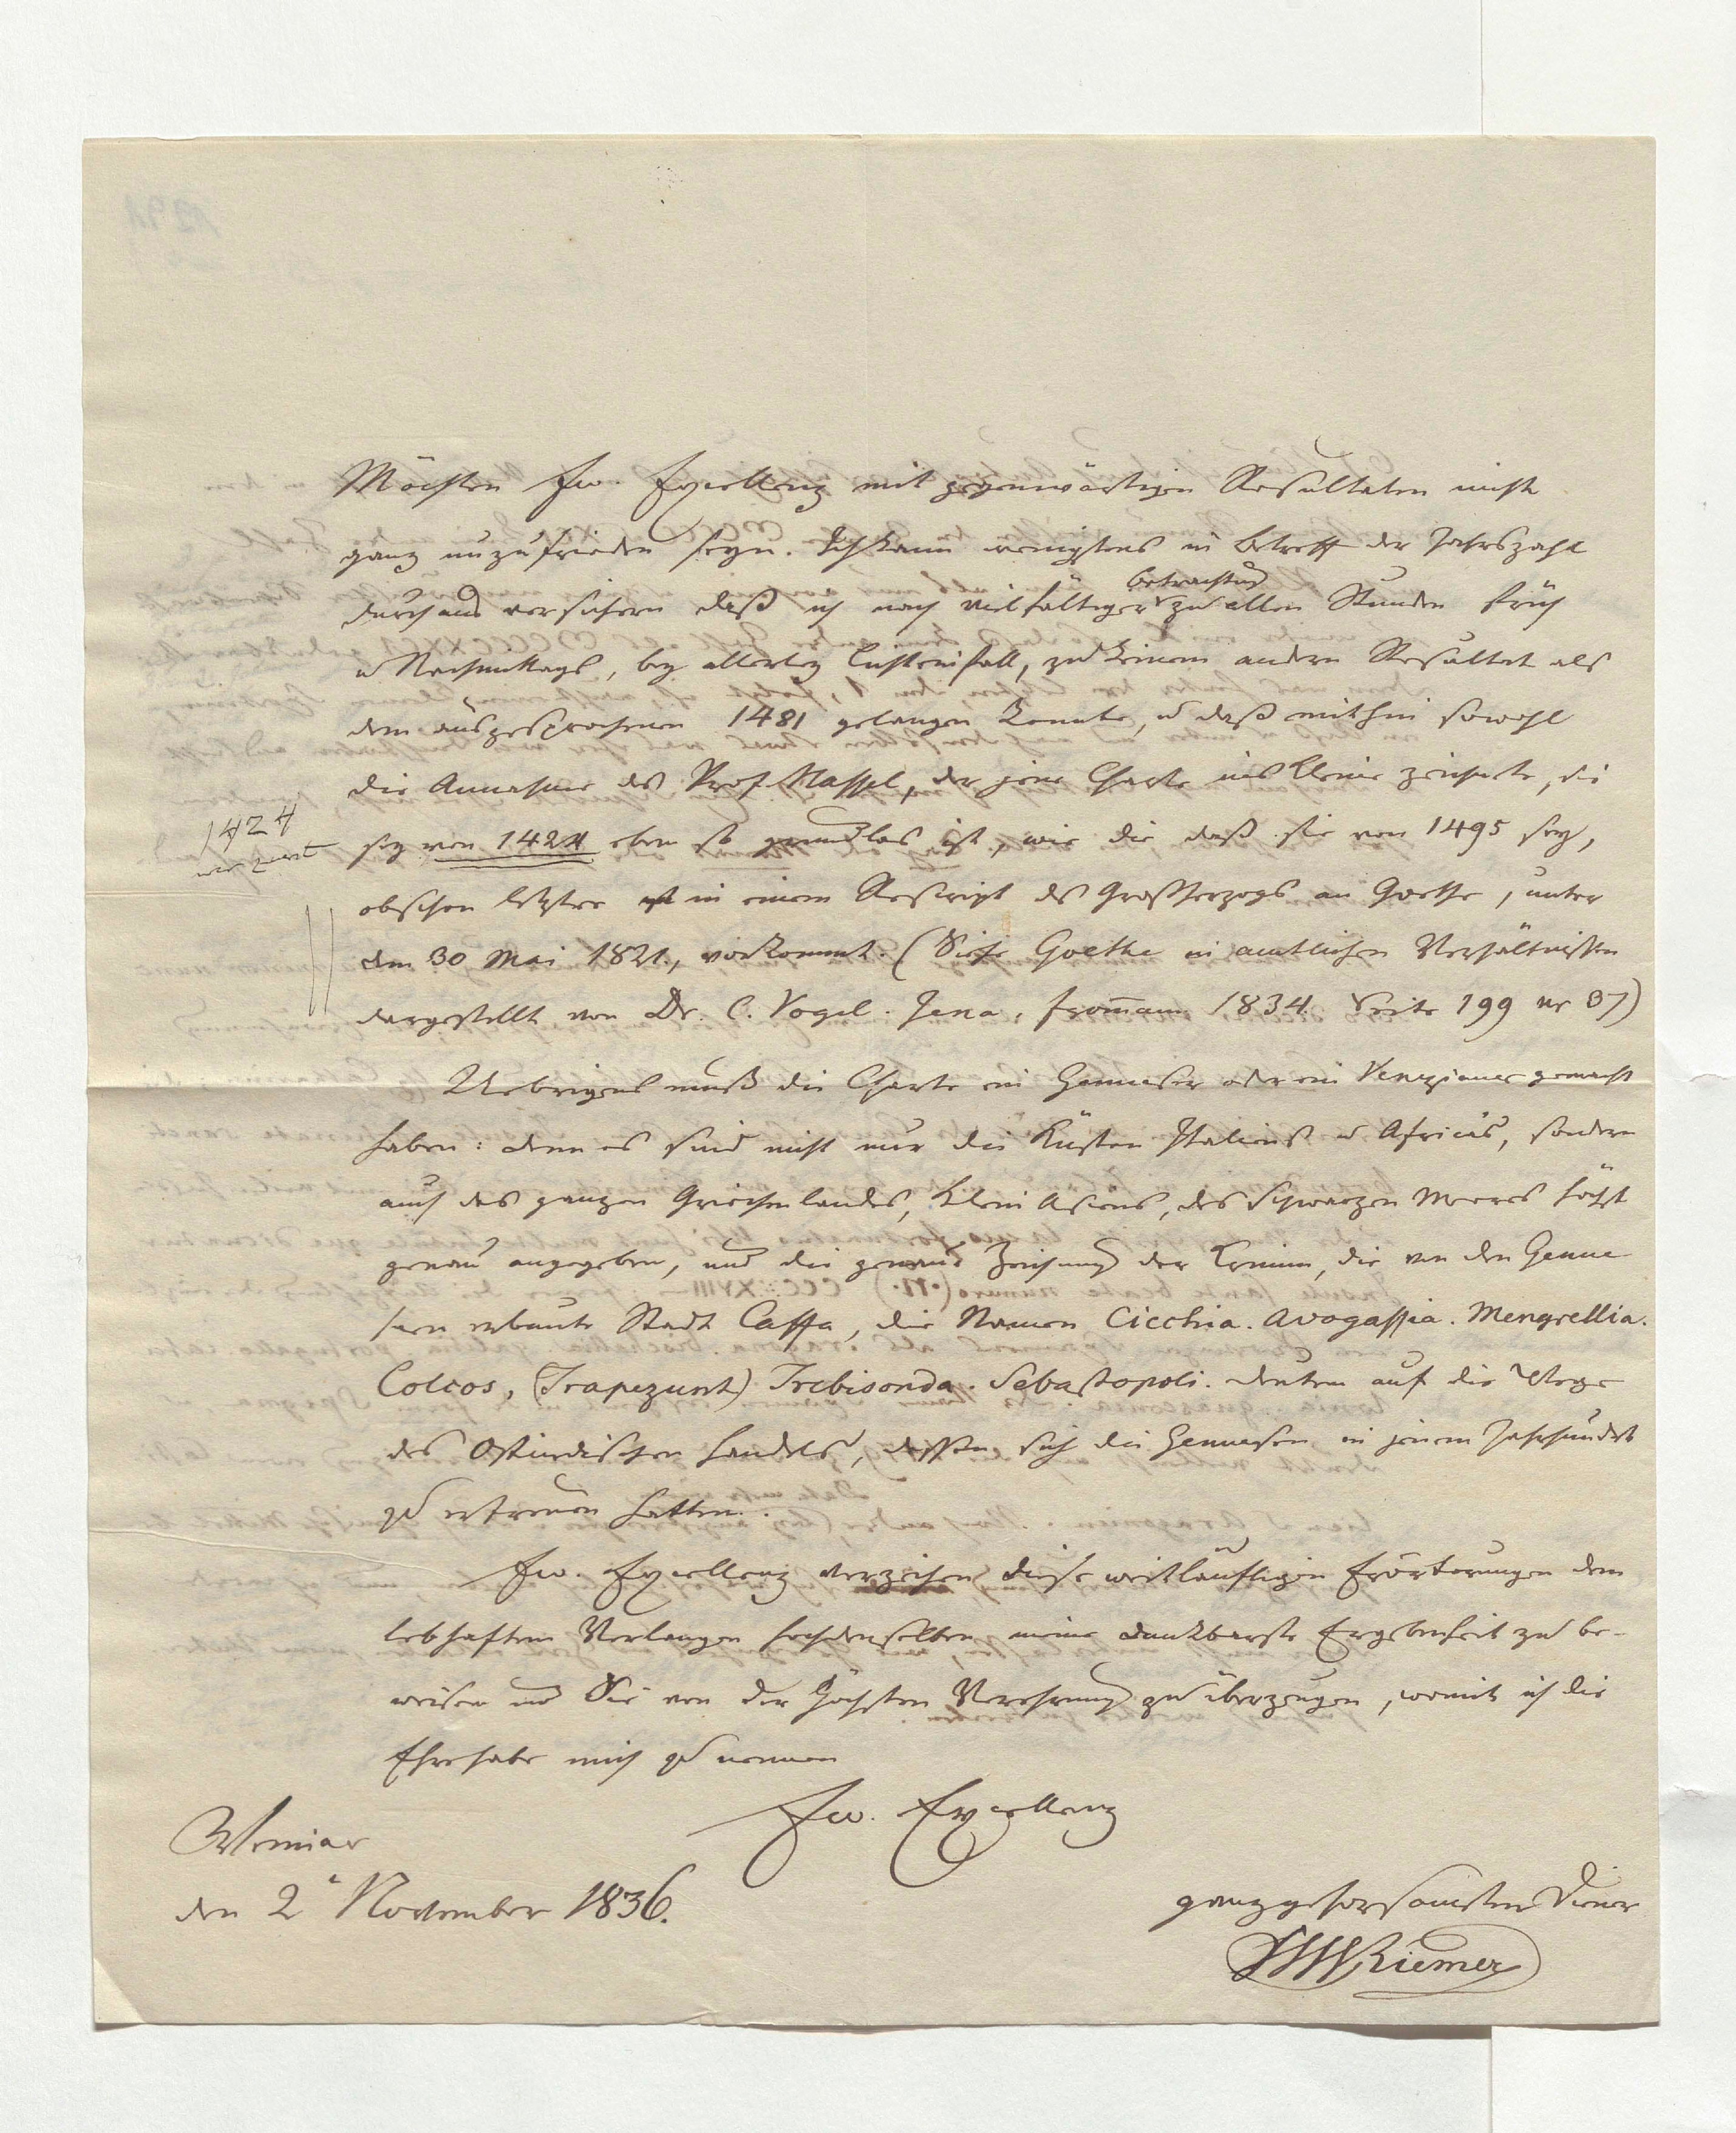 Möchten Ew. Excellenz mit gegenwärtigen Resultaten nicht
ganz unzufrieden seyn. Ich kann wenigstens in Betreff der Jahrszahl
durchaus versichern daß ich nach vielfältiger Betrachtung zu allen Stunden früh
u Nachmittags, bey allerley Lichteinfall, zu keinem andern Resultat als
dem ausgesprochenen 1481 gelangen konnte, u daß mithin sowohl
die Annahme des Prof. Hassel, der jene Charte ins Kleine zeichnete, sie
sey von 1424 eben so grundlos ist, wie die daß sie von 1495 sey,
1424
obschon letztre in einem Rescript des Großherzogs an Goethe, unter
dem 30 Mai 1821., vorkommt. (Siehe Goethe in amtlichen Verhältnissen
dargestellt von Dr. C. Vogel. Jena, From̅ann 1834. Seite 199 nr 87)
Uebrigens muß die Charte ein Genueser oder ein Venezianer gemacht
haben: denn es sind nicht nur die Küsten Italiens u Africas, sondern
auch des ganzen Griechenlandes, Klein Asiens, des Schwarzen Meeres höchst
genau angegeben, und die genaue Zeichnung der Krimm, die von den Genue
sern erbaute Stadt Caffa, die Namen Cicchia. Avogassia. Mengrellia.
Colcos, (Trapezunt) Trebisonda. Sebastopoli. deuten auf die Wege
des Ostindischen Handels, dessen sich die Genuesen in jenem Jahrhundert
zu erfreuen hatten.
Ew. Excellenz verzeihen diese weitläuftigen Erörterungen dem
lebhaften Verlangen Hochdenselben meine dankbarste Ergebenheit zu be-
weisen und Sie von der höchsten Verehrung zu überzeugen, womit ich die
Ehre habe mich zu nennen
Ew. Excellenz
Weimar
den 2 November 1836.
ganz gehorsamster Diener
FWRiemer